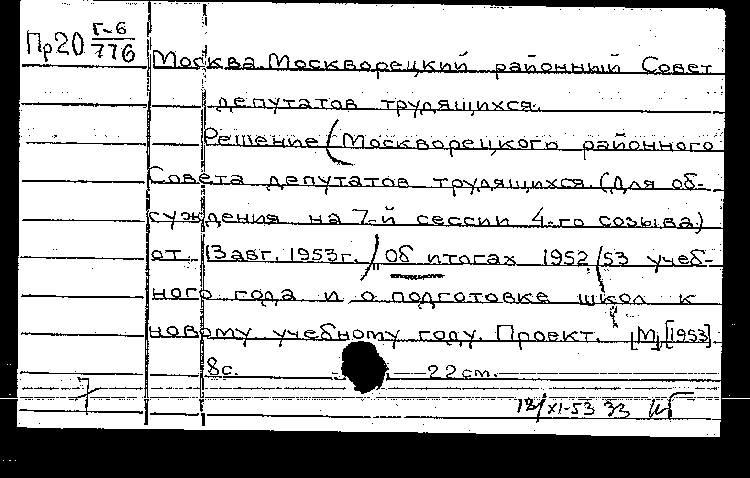 Пр20 Г-6/776
Москва. Москворецкий районный Совет
депутатов трудящихся.
Решение (Москворецкого районного
Совета депутатов трудящихся. (Для об-
суждения на 7-й сессии 4-го созыва)
от 13 авг. 1953г.) Об итогах 1952/53 учеб-
ного года и о подготовке школ к
новому учебному году. Проект. [М], [1953].
8с. 22см.
7
13/XI-53 33